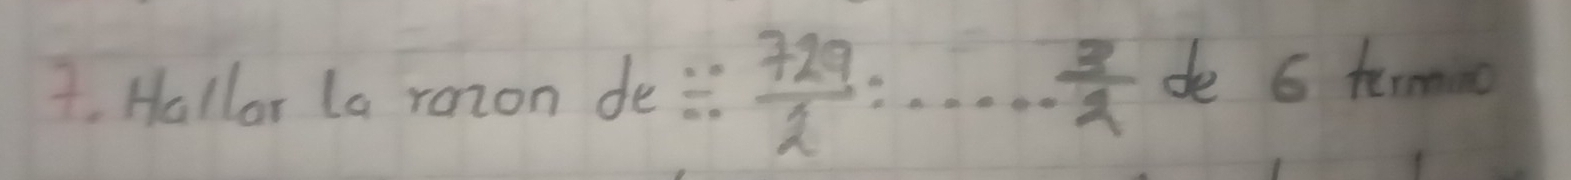 7. Hallar la razon de ∺ 729/2 : ...... 3/2 de 6 termino